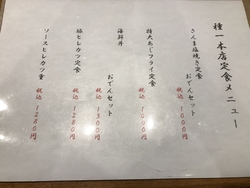 種一本店定食メニュー
さんま塩焼き定食
おでんセット
税込 1000円
特大あじフライ定食
税込 1000円
海鮮丼
おでんセット
税込 1300円
豚ヒレカツ定食
税込 1200円
ソースヒレカツ重
税込 1200円